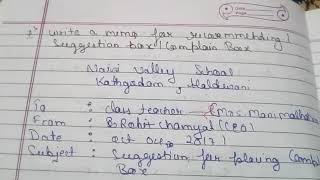 write a memo for recommending /
Suggestion box / Complain Box
Naini Valley School
Kathgodam, Haldwani
To : class teacher (Mrs. Mani malhotra
From : Rohit Chamyal (CEO)
Date :
Subject : Suggestion for placing
Box